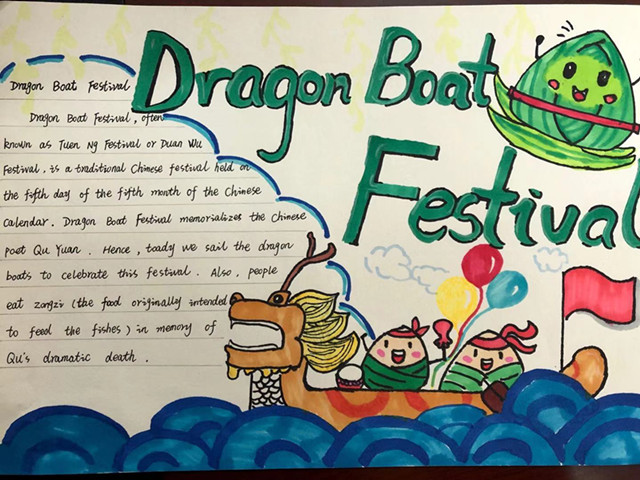 Dragon Boat
Festival
Dragon Boat Festival
Dragon Boat Festival, often
known as Tuen Ng Festival or Duan Wu
Festival, is a traditional Chinese festival held on
the fifth day of the fifth month of the Chinese
Calendar. Dragon Boat Festival memorializes the Chinese
poet Qu Yuan. Hence, toady we sail the dragon
boats to celebrate this festival. Also, people
eat zongzi (the food originally intended
to feed the fishes) in memory of
Qu's dramatic death.